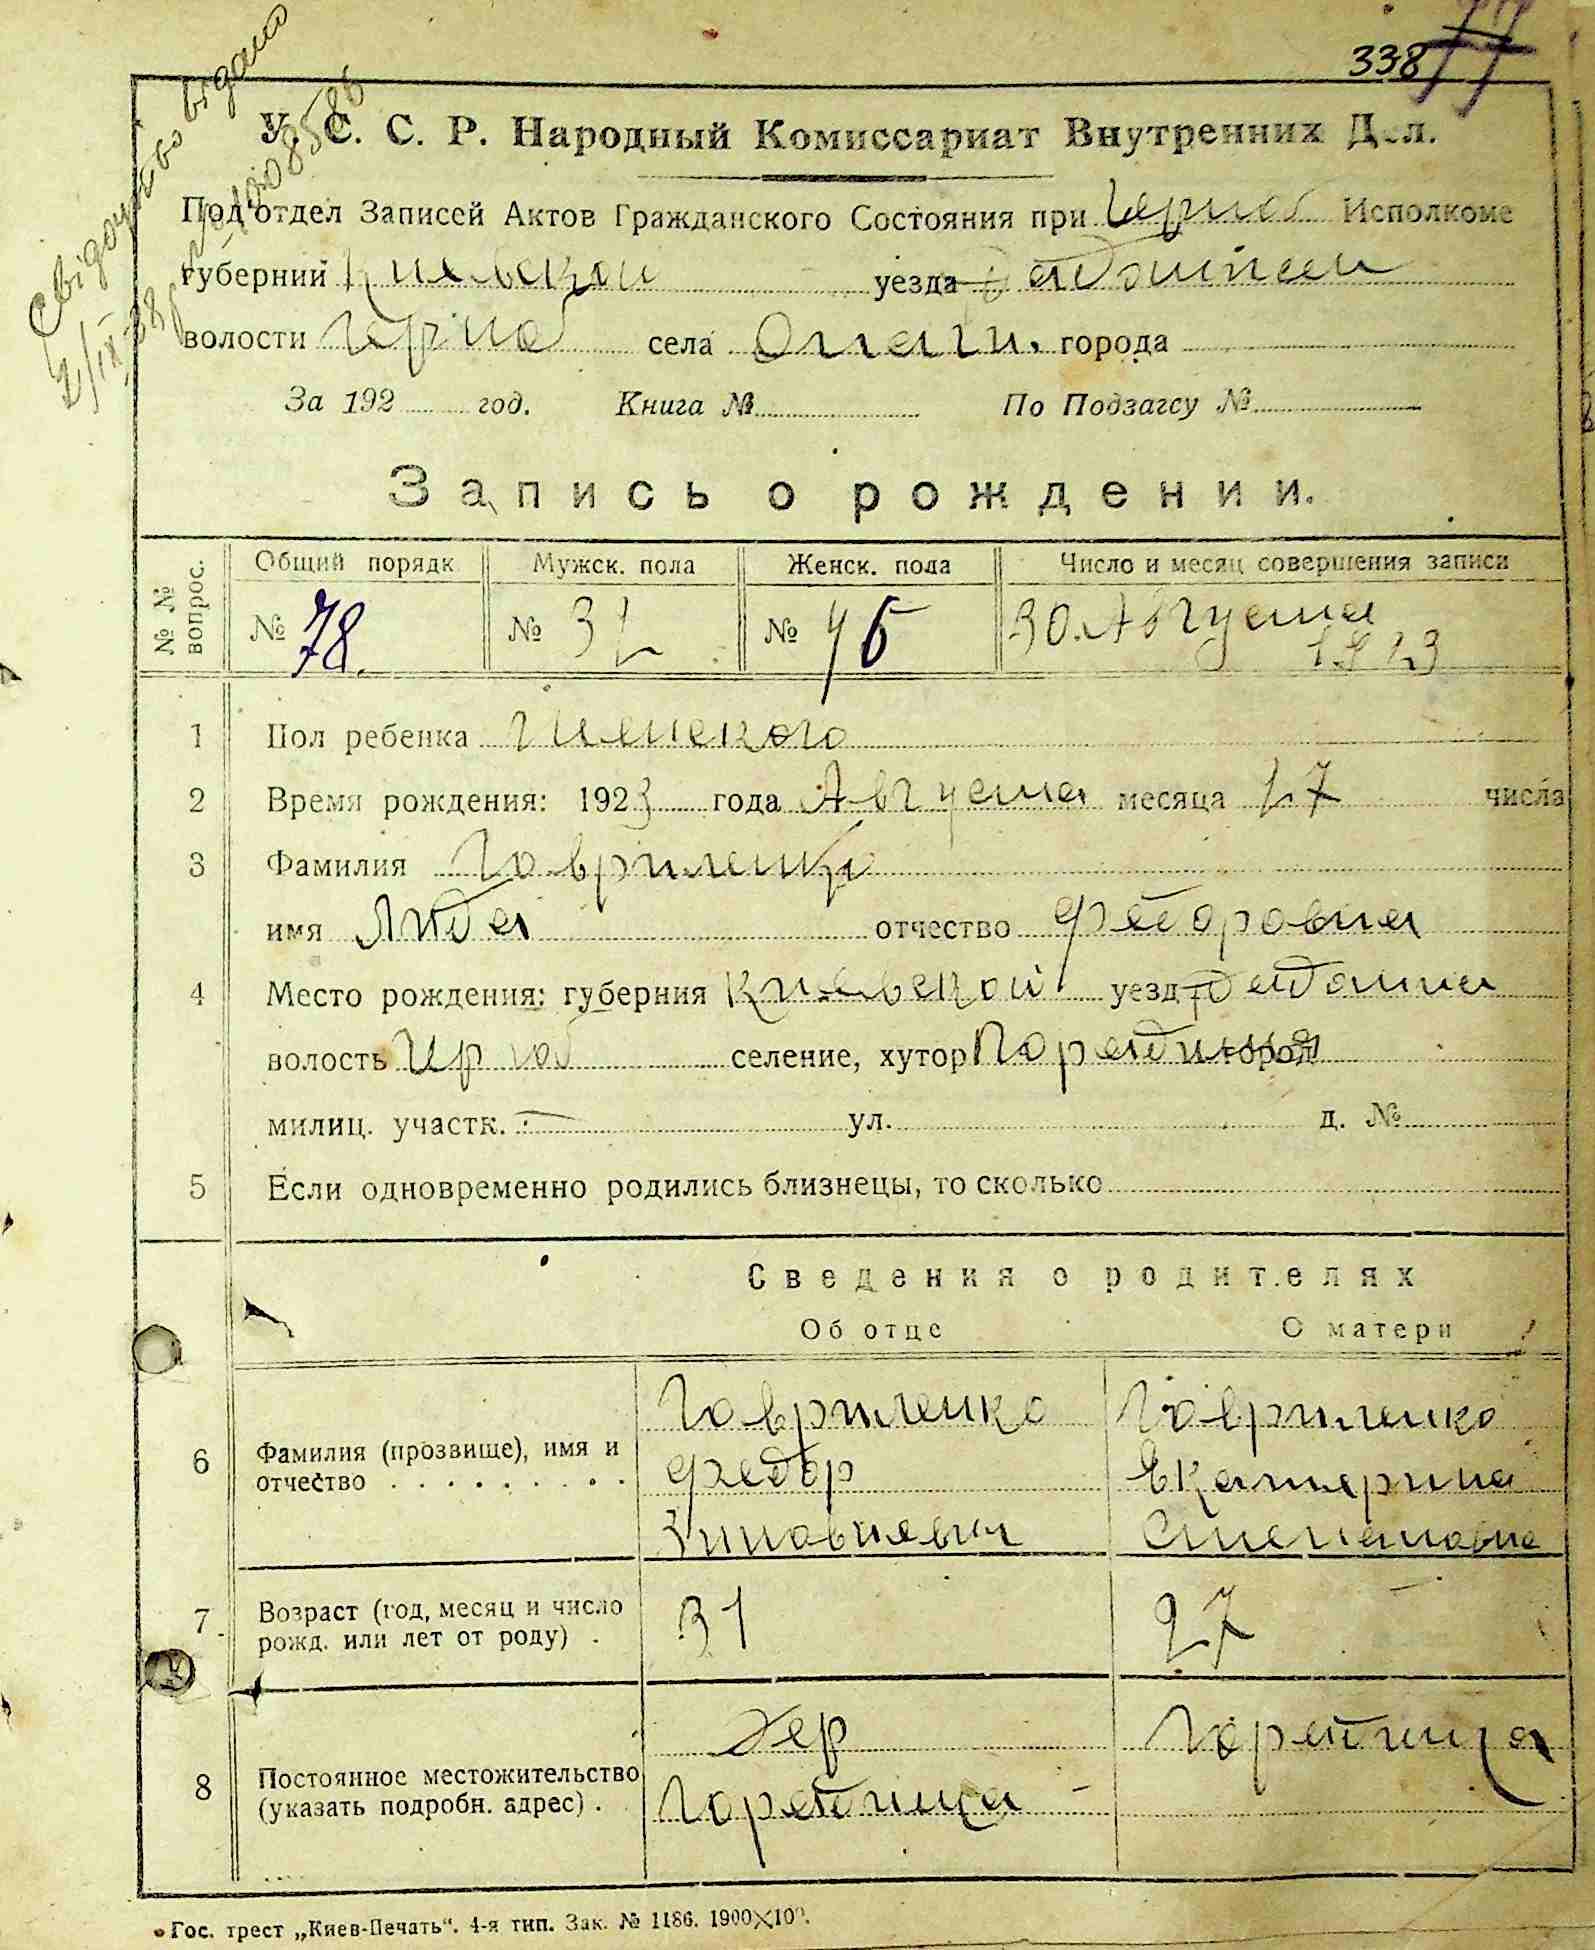 338 77
Свідоцтво видано
2/IX-38 р № 108586
У. С. С. Р. Народный Комиссариат Внутренних Дел.
Подотдел Записей Актов Гражданского Состояния при Черноб Исполкоме
губернии Киевской уезда
волости Черноб села города
За 192 год. Книга № По Подзагсу №
Запись о рождении.
№ № вопрос. Общий порядк Мужск. пола Женск. пола Число и месяц совершения записи
№ 78. № 32 № 46 30. Августа 1923
1 Пол ребенка Женского
2 Время рождения: 1923 года Августа месяца 27 числа
3 Фамилия Гавриленко
имя Лида отчество Федоровна
4 Место рождения: губерния Киевской уезд
волость селение, хутор город
милиц. участк. - ул. д. №
5 Если одновременно родились близнецы, то сколько
Сведения о родителях
Об отце О матери
Гавриленко Гавриленко
6 Фамилия (прозвище), имя и отчество Федор Екатерина
Зиновиевич
7 Возраст (год, месяц и число рожд. или лет от роду) . 31 27
8 Постоянное местожительство (указать подробн. адрес) .
Гос. трест „Киев-Печать“. 4-я тип. Зак. № 1186. 1900×100.